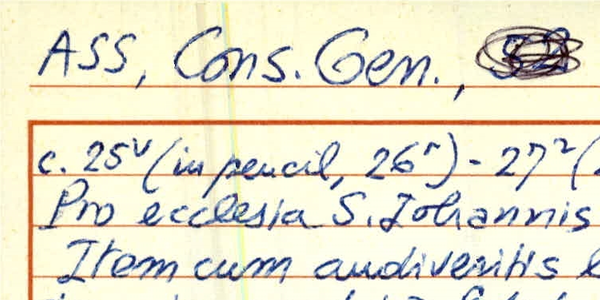 ASS, Cons. Gen.,
c. 25v (in pencil, 26r) - 27r (
Pro ecclesia S. Johannis
Item cum audiveritis